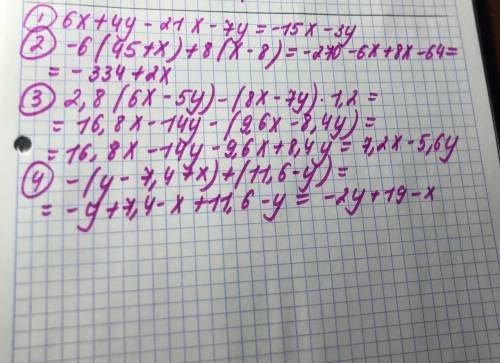 ① 6x+4y-21x-7y=-15x-3y
② -6(45+x)+8(x-8)=-270-6x+8x-64=
=-334+2x
③ 2,8(6x-5y)-(8x-7y)·1,2=
=16,8x-14y-(9,6x-8,4y)=
=16,8x-14y-9,6x+8,4y=7,2x-5,6y
④ -(y-7,47x)+(11,6-y)=
=-y+7,4-x+11,6-y=-2y+19-x